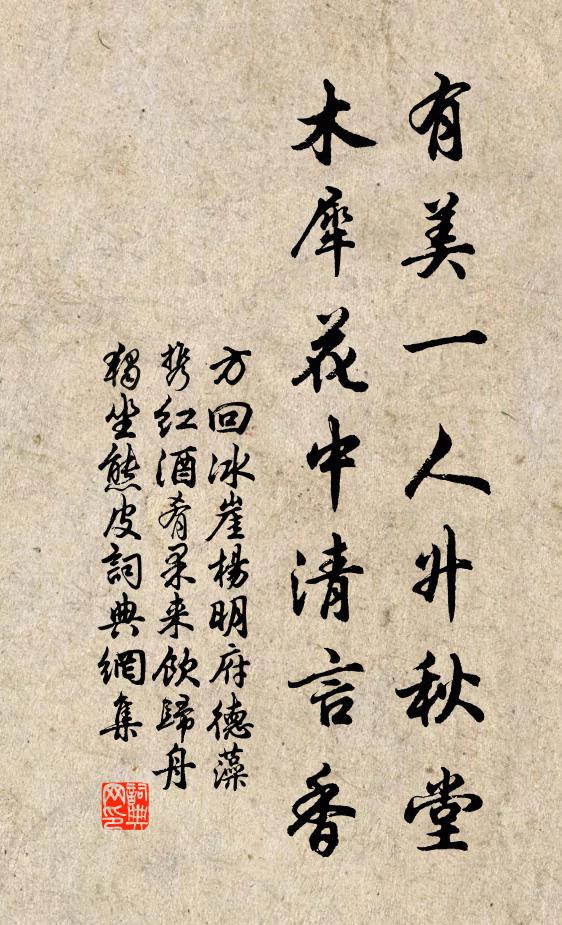 有美一人升秋堂
木犀花中清言香
方回冰崖楊明府德藻
携红酒肴果来飲歸舟
獨坐熊皮詞典網集
詞典网印